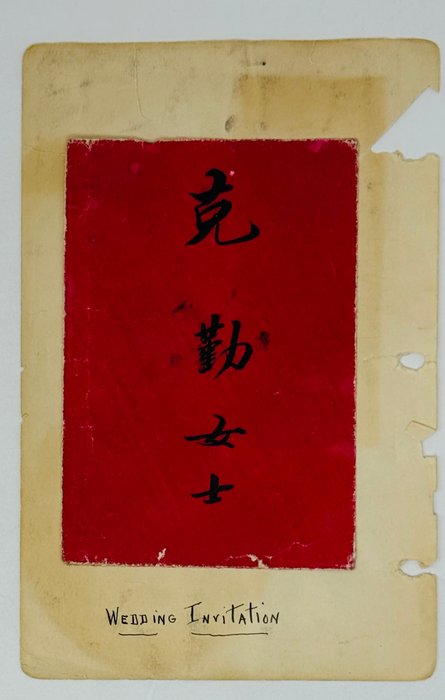 克勤女士
WEDDING INVITATION